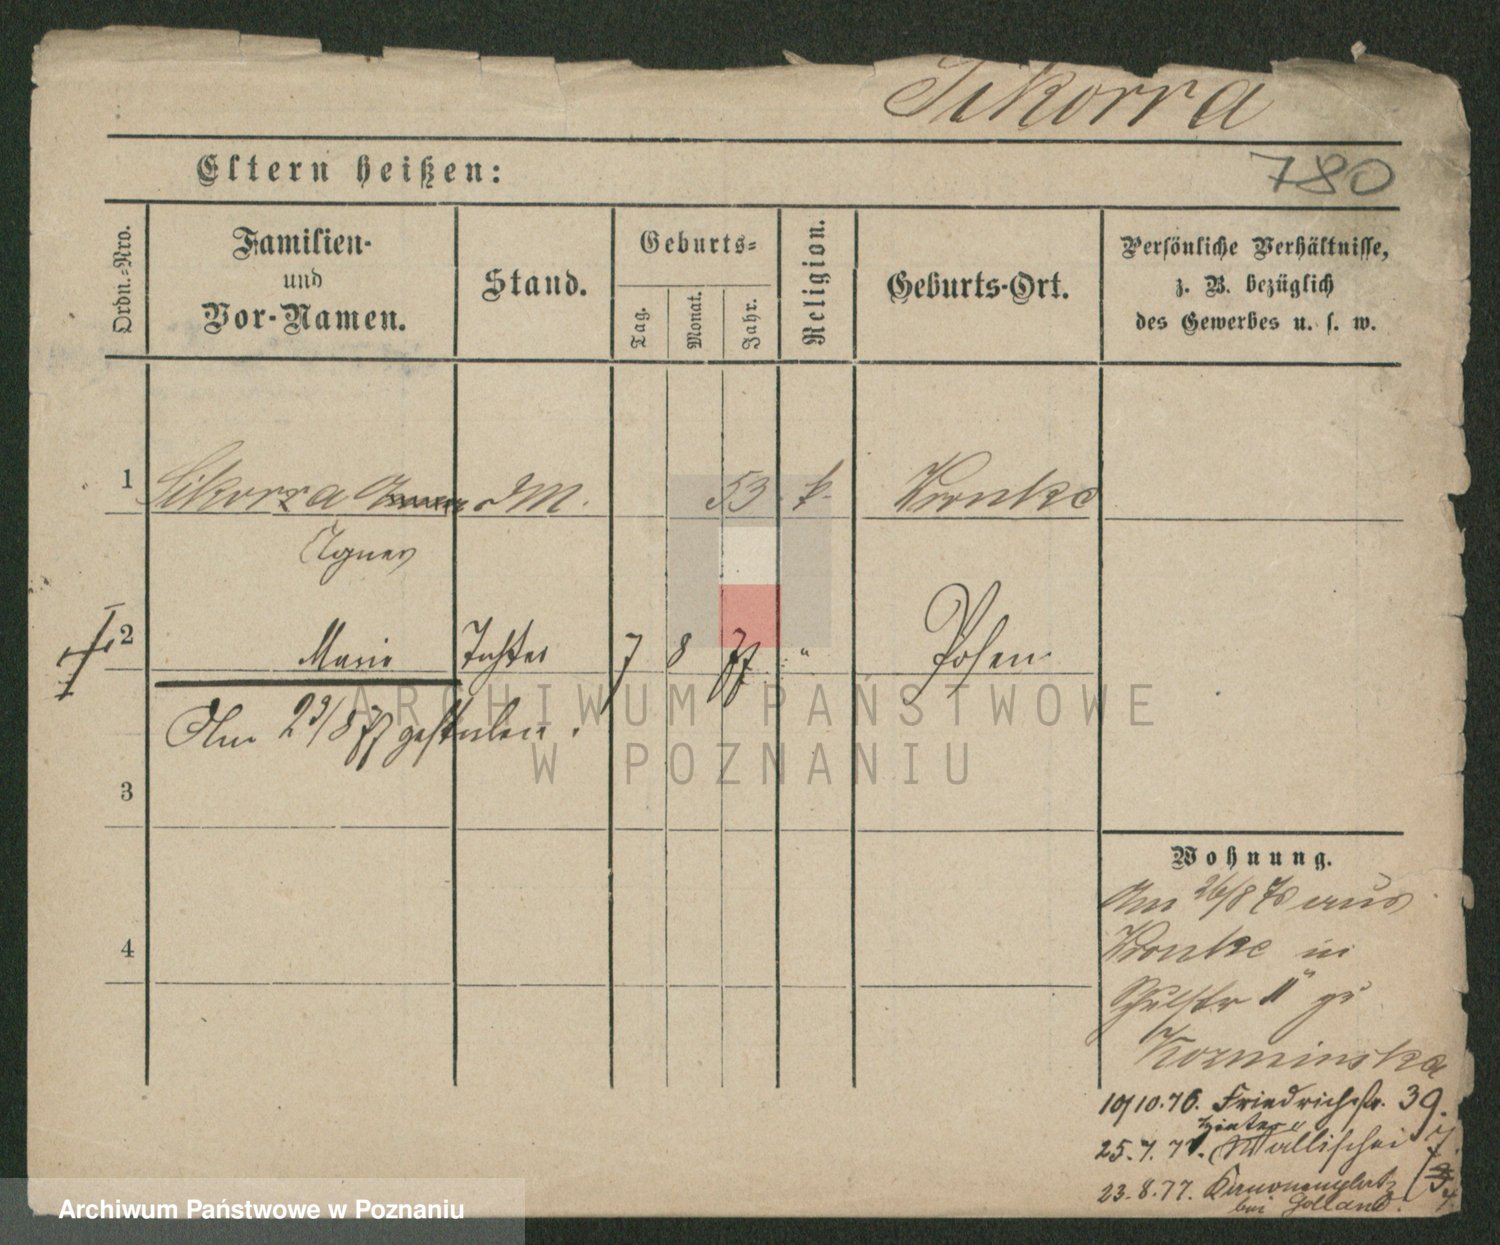 Sikorra
780
Eltern heißen:
Ordn.-Nro.
Familien-
und
Vor-Namen.
Stand.
Geburts-
Tag.
Monat.
Jahr.
Religion.
Geburts-Ort.
Persönliche Verhältnisse,
z. B. bezüglich
des Gewerbes u. s. w.
1 Sikorra M. 53 k. Wronke
Agnes
2 Marie Tochter 7 8 77 " Posen
Am 23/8 77 gestorben.
3
4
Wohnung.
Am 26/8 76 aus
Wronke in
Schulstr 11 zu
Kozminska
10/10.76. Friedrichstr. 39.
hinter
25.7.77. Wallischei 7.
23.8.77. Kanonenplatz
bei Golland.
ARCHIWUM PAŃSTWOWE
W POZNANIU
Archiwum Państwowe w Poznaniu